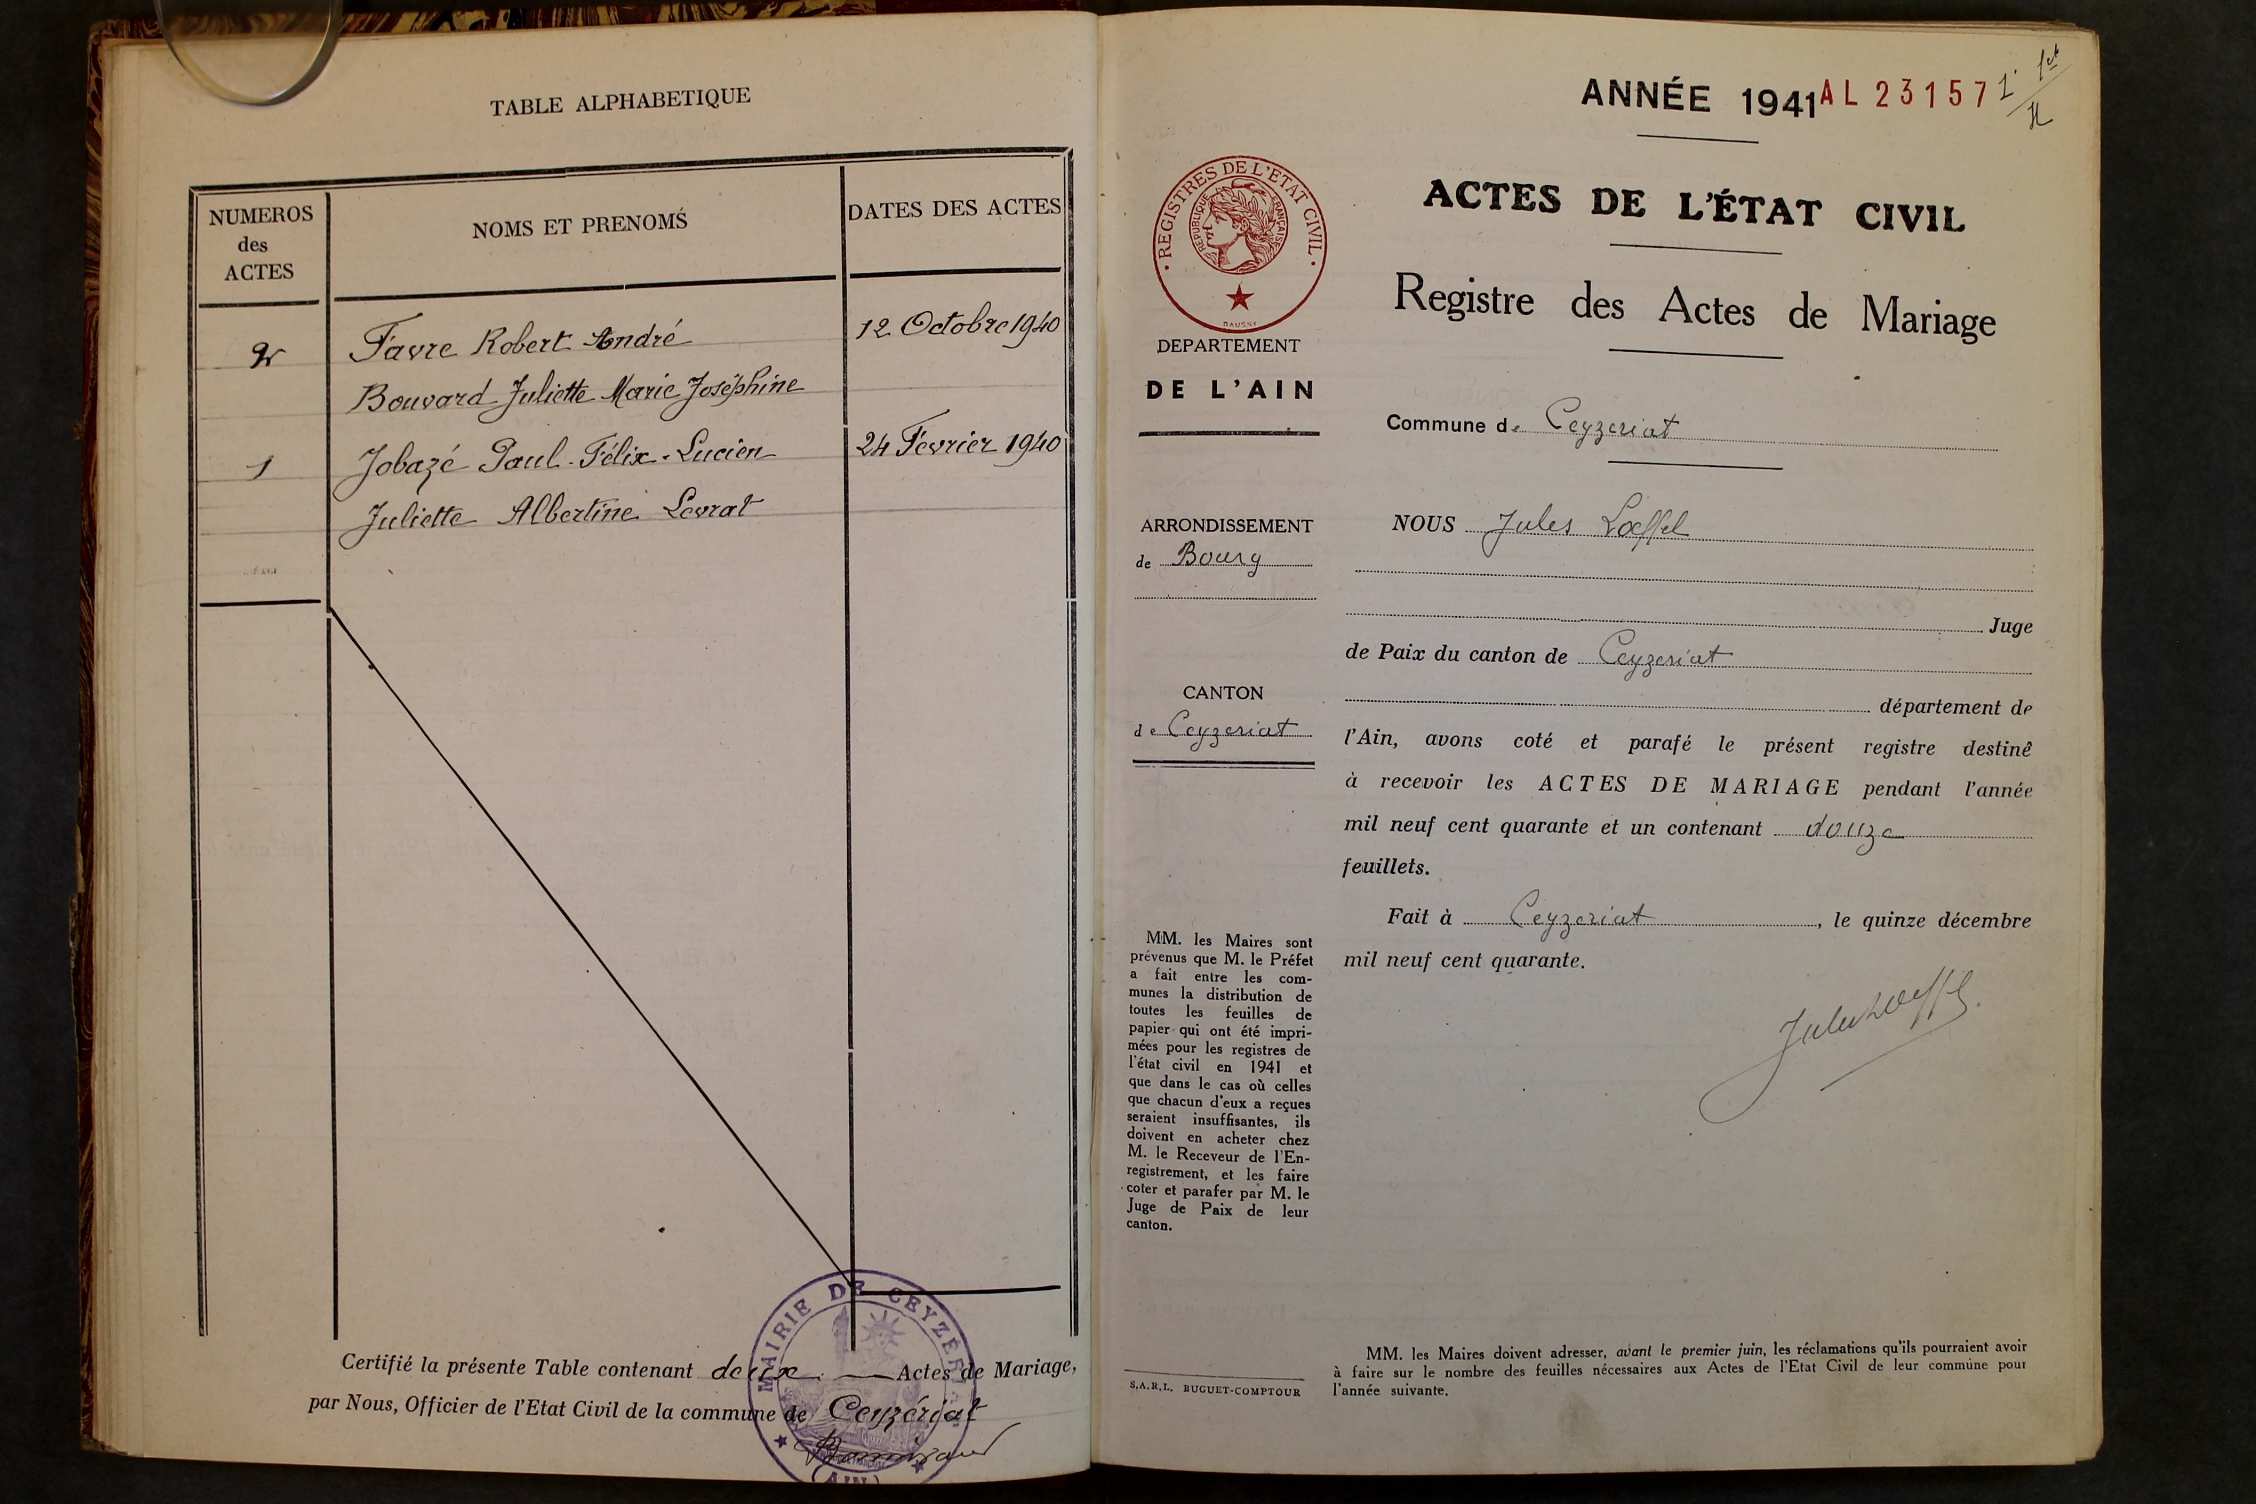 TABLE ALPHABETIQUE
NUMEROS
des
ACTES
NOMS ET PRENOMS
DATES DES ACTES
2
Favre Robert André
12 Octobre 1940
Bouvard Juliette Marie Joséphine
1
Jobazé Paul-Félix-Lucien
24 Février 1940
Juliette Albertine Levrat
Certifié la présente Table contenant deux Actes de Mariage,
par Nous, Officier de l'Etat Civil de la commune de Ceyzériat
MAIRIE DE CEYZÉRIAT
(AIN)
ANNÉE 1941 AL 23157
1er
ACTES DE L'ÉTAT CIVIL
Registre des Actes de Mariage
· REGISTRES DE L'ETAT CIVIL ·
REPUBLIQUE FRANÇAISE
DEPARTEMENT
DE L'AIN
Commune de Ceyzeriat
ARRONDISSEMENT
de Bourg
CANTON
de Ceyzeriat
NOUS Jules Loeffel
Juge
de Paix du canton de Ceyzeriat
département de
l'Ain, avons coté et parafé le présent registre destiné
à recevoir les ACTES DE MARIAGE pendant l'année
mil neuf cent quarante et un contenant douze
feuillets.
Fait à Ceyzeriat, le quinze décembre
mil neuf cent quarante.
Jules Loeffel
MM. les Maires sont
prévenus que M. le Préfet
a fait entre les com-
munes la distribution de
toutes les feuilles de
papier qui ont été impri-
mées pour les registres de
l'état civil en 1941 et
que dans le cas où celles
que chacun d'eux a reçues
seraient insuffisantes, ils
doivent en acheter chez
M. le Receveur de l'En-
registrement, et les faire
coter et parafer par M. le
Juge de Paix de leur
canton.
S.A.R.L. BUGUET-COMPTOUR
MM. les Maires doivent adresser, avant le premier juin, les réclamations qu'ils pourraient avoir
à faire sur le nombre des feuilles nécessaires aux Actes de l'Etat Civil de leur commune pour
l'année suivante.